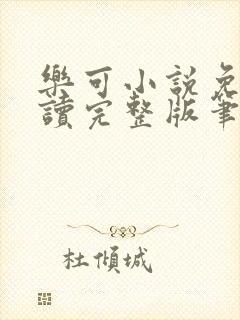 樂可小說免
讀完整版筆
杜傾城